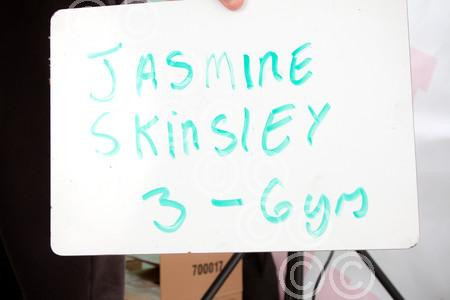 JASMINE
SKinSLEY
3 - Gym
700017